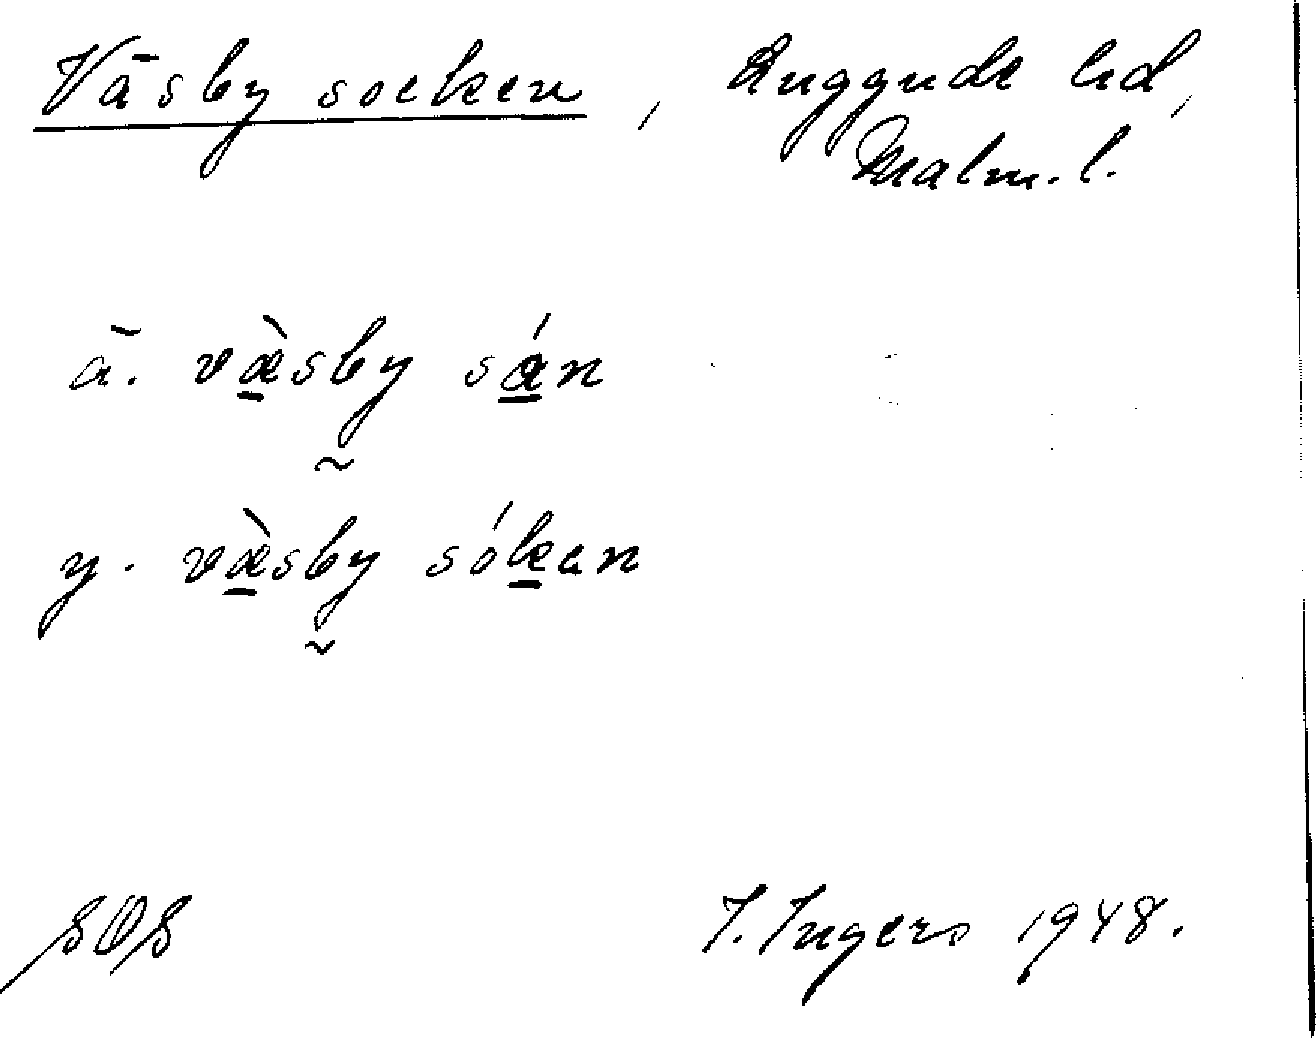 Väsby socken, Luggude hd,
Malm.l.
ä. væ̀sby sán
y. væ̀sby sóken
SOS
I. Ingers 1948.